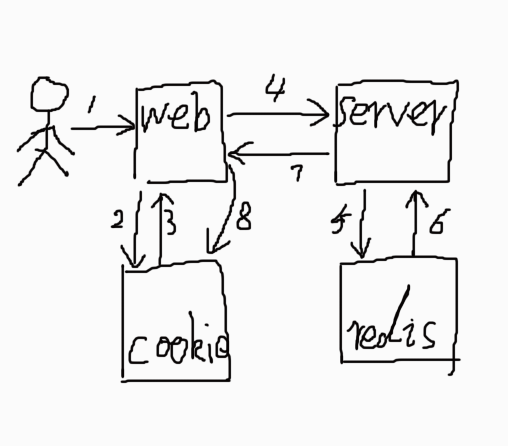 1
web
4
server
7
2
3
8
5
6
cookie
redis